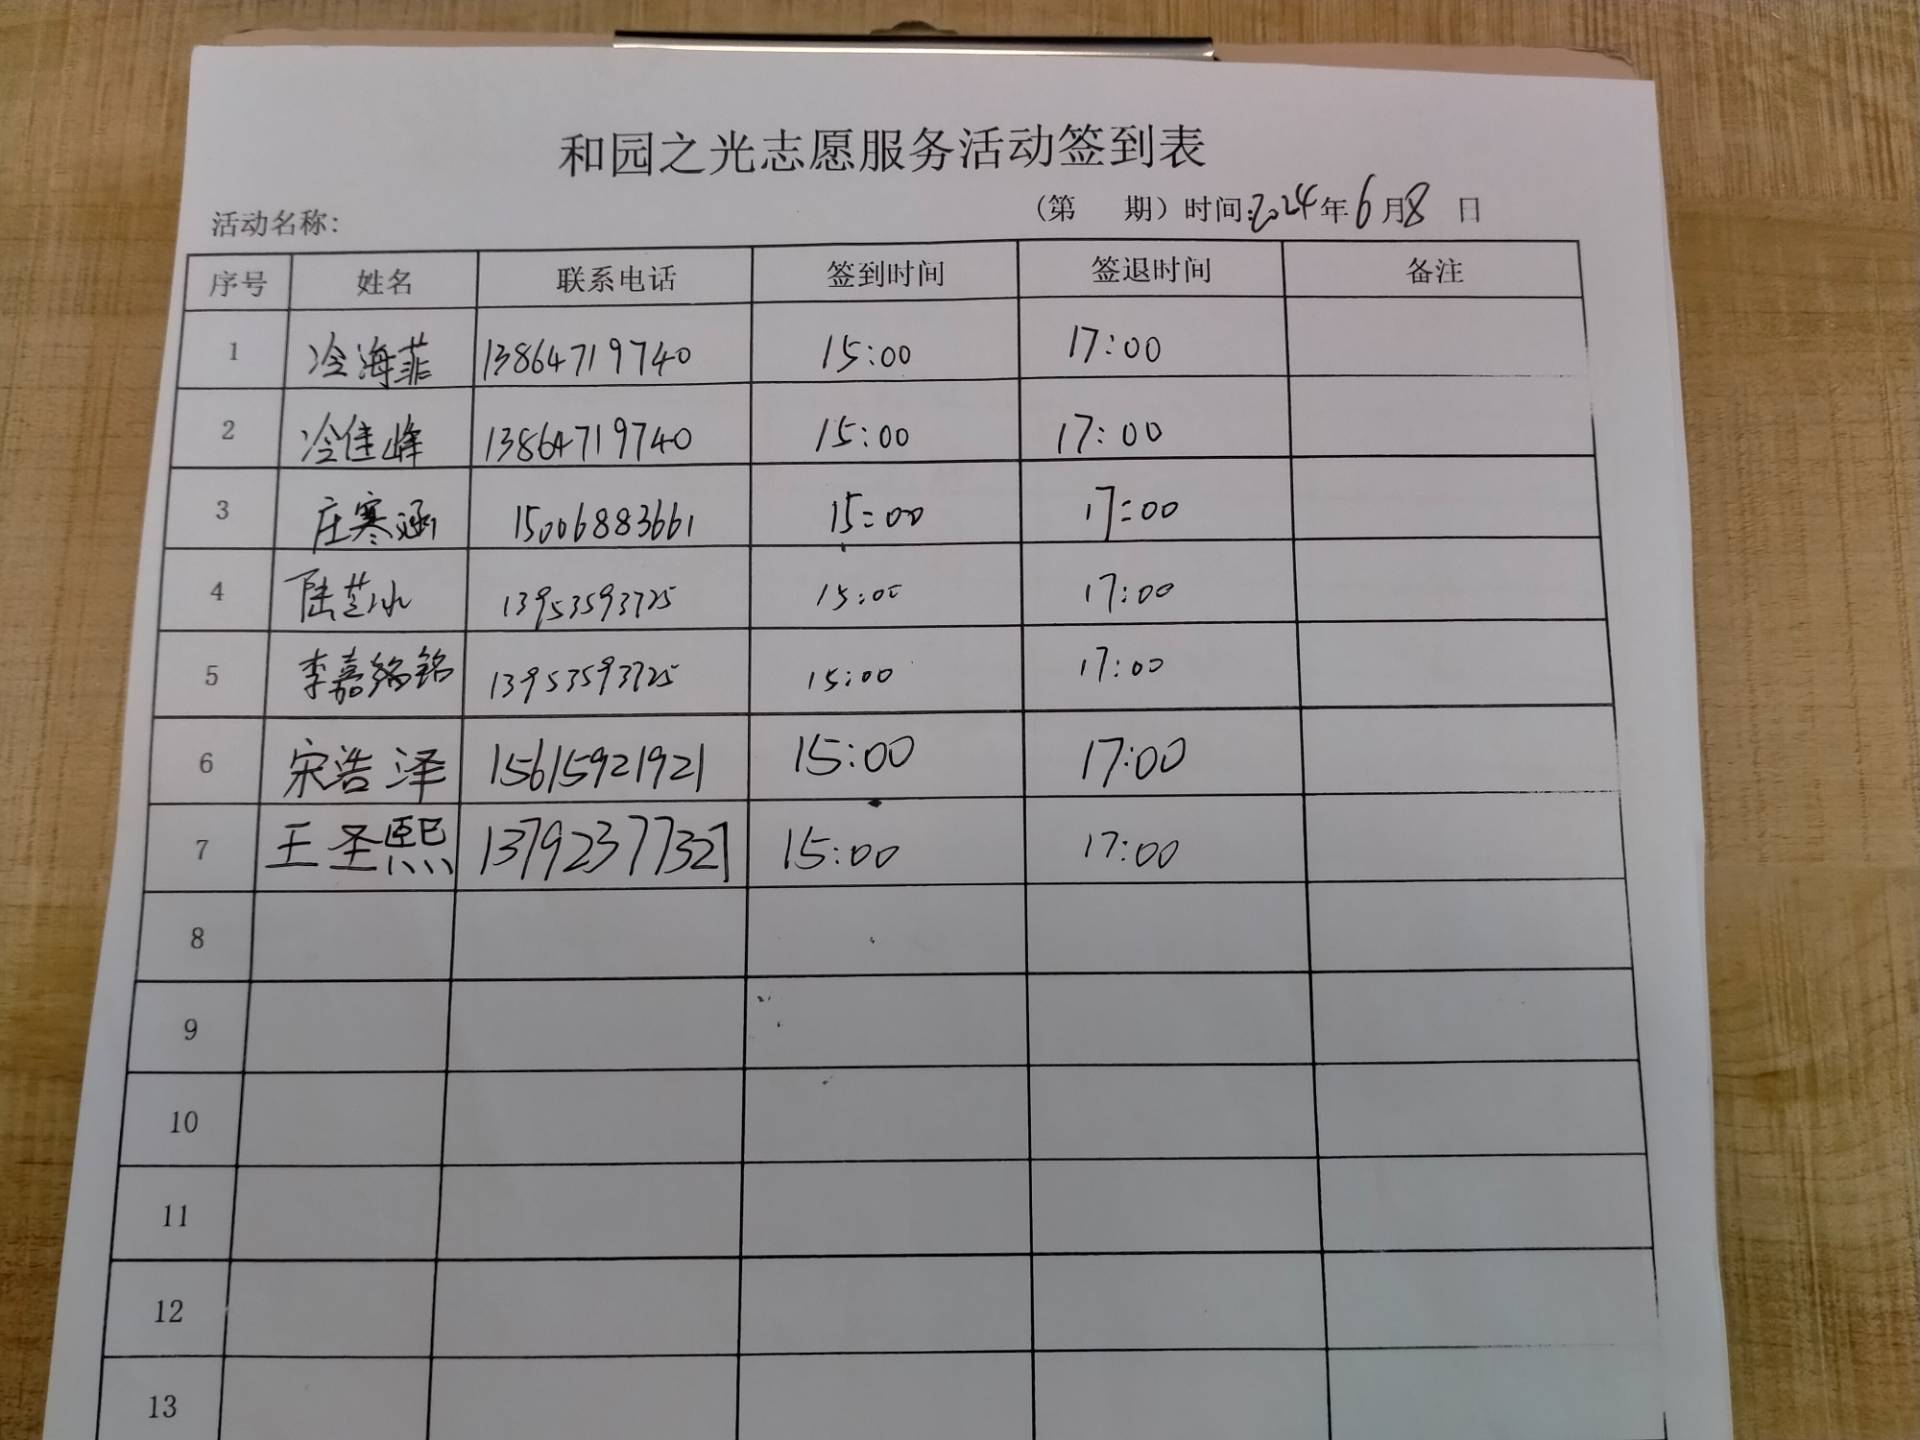 和园之光志愿服务活动签到表
活动名称: (第 期) 时间:2024年6月8日
序号 姓名 联系电话 签到时间 签退时间 备注
1 冷海菲 13864719740 15:00 17:00
2 冷佳峰 13864719740 15:00 17:00
3 庄寒涵 15006883661 15:00 17:00
4 陆芝冰 13953593725 15:00 17:00
5 李嘉铭 13953593725 15:00 17:00
6 宋浩泽 15615921921 15:00 17:00
7 王圣熙 13792377327 15:00 17:00
8
9
10
11
12
13